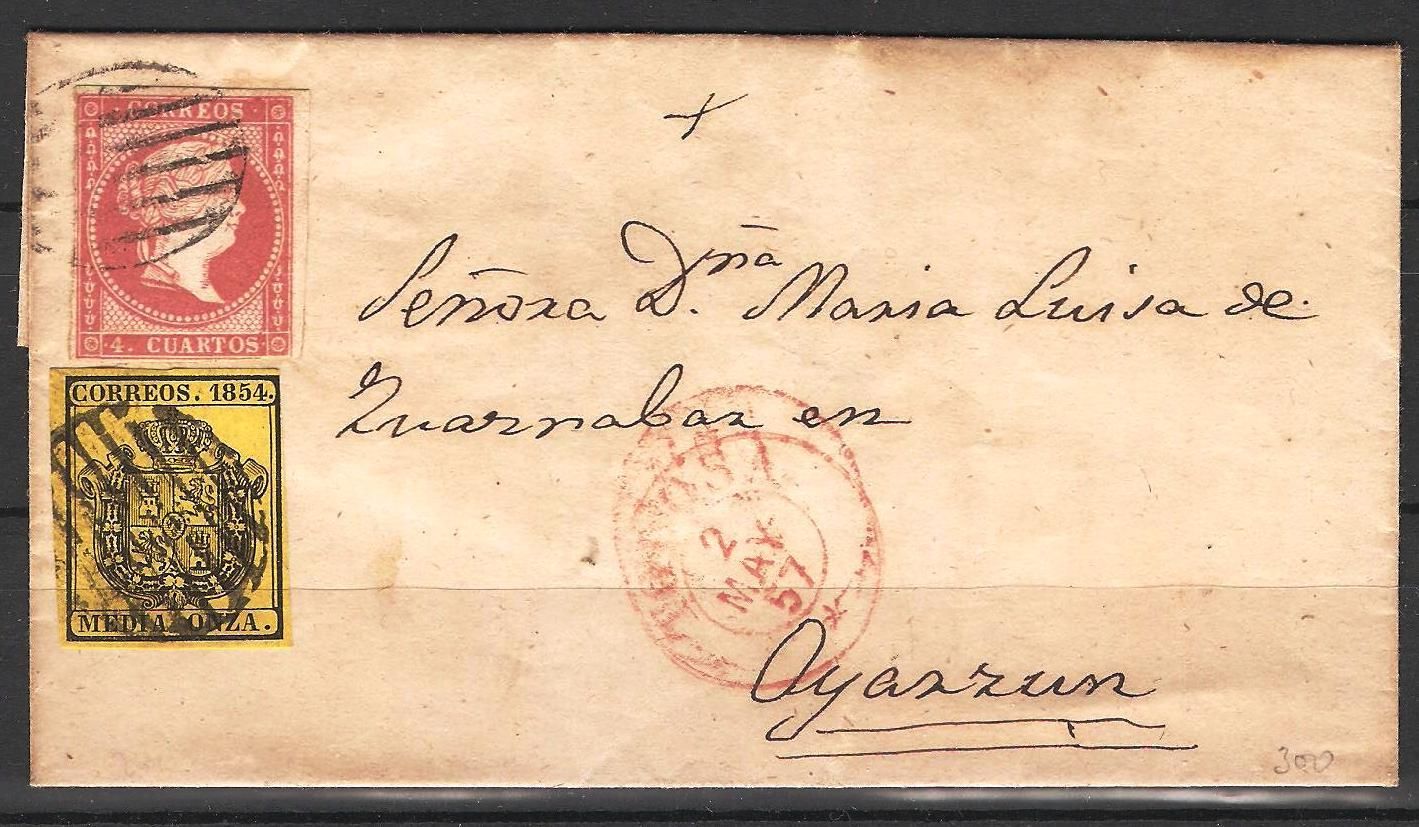 CORREOS
4. CUARTOS
CORREOS. 1854.
MEDIA ONZA.
Señora Dña. Maria Luisa de
Zuarnabar en
Oyarzun
2
MAY
57
300